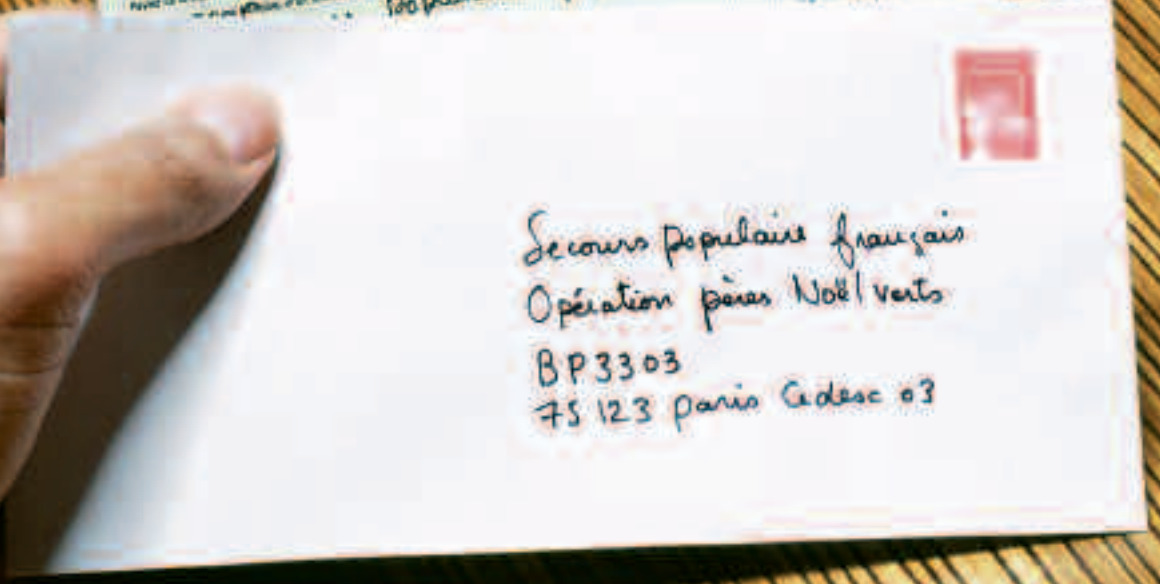 Secours populaire français
Opération pères Noël verts
BP 3303
75123 Paris Cedex 03